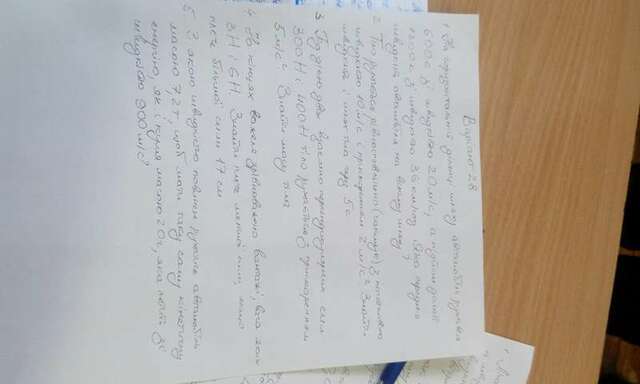 Варіант 28
1. На горизонтальній ділянці шляху автомобіль рухався
600 с зі швидкістю 20 м/с, а
зі швидкістю 36 км/год. Яка середня
швидкість автомобіля на всьому шляху?
2. Тіло рухається рівносповільнено з початковою
швидкістю 10 м/с і прискоренням 2 м/с². Знайти
швидкість і шлях тіла через 5 с
3. Під дією двох взаємно перпендикулярних сил
300 Н і 400 Н тіло рухається з прискоренням
5 м/с². Знайти масу тіла
4. На кінцях важеля зрівноважено вантажі, вага яких
3Н і 6Н. Знайти плече меншої сили, якщо
плече більшої сили 17 см
5. З якою швидкістю повинен рухатись автомобіль
масою 7,2 т щоб мати таку саму кінетичну
енергію, як і куля масою 20 г, яка летить зі
швидкістю 900 м/с?